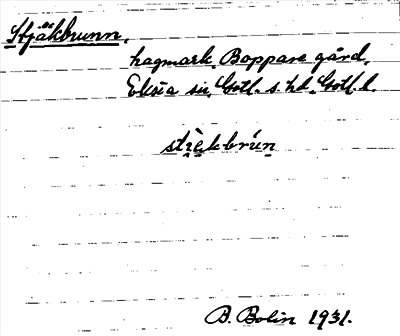 Stjäkbrunn,
hagmark, Boppare gård,
Eksta sn, Gotl. s. hd, Gotl. l.
stiekbrun
B. Bolin 1931.